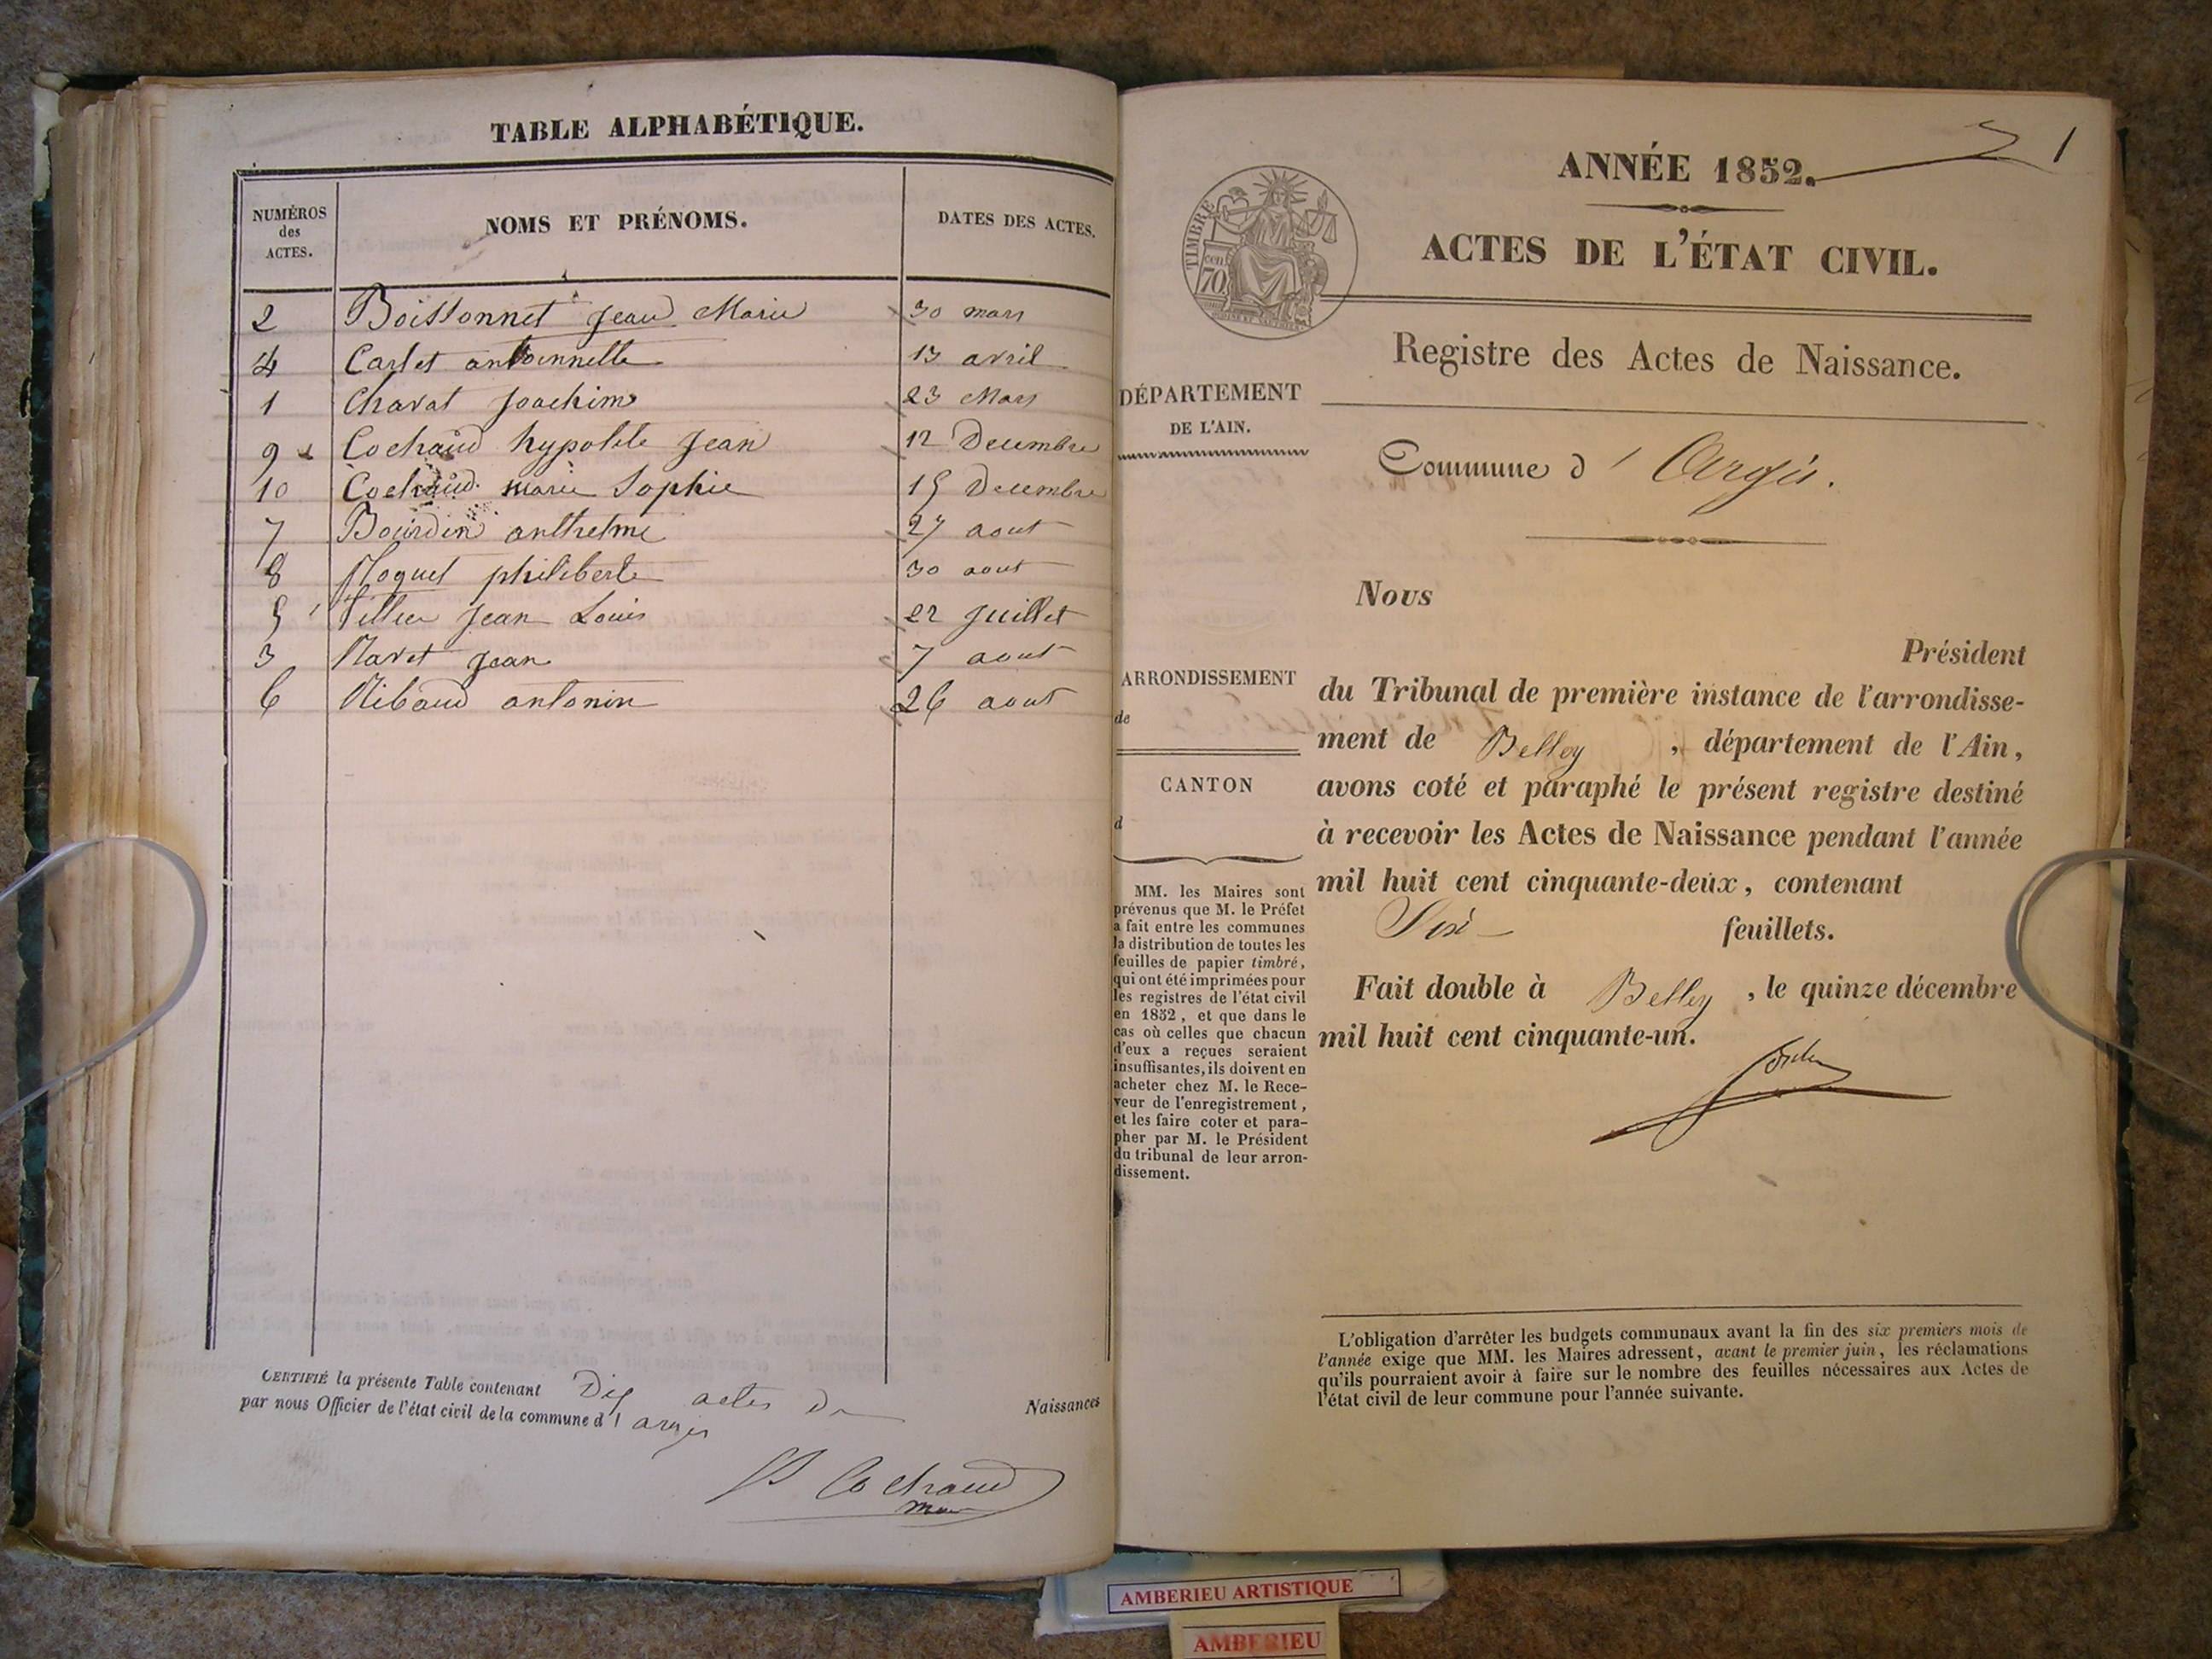 TABLE ALPHABÉTIQUE.
NUMÉROS des ACTES. NOMS ET PRÉNOMS. DATES DES ACTES.
2 Boissonnet Jean Marie 30 mars
4 Carlet antoinnelle 13 avril
1 Charat Joachim 23 Mars
9 Cochaud hypolite Jean 12 Decembre
10 Cochaud marie Sophie 15 Decembre
7 Bourdin anthelme 27 aout
8 philiberte 30 aout
5 Jean Louis 22 Juillet
3 Jean 7 aout
6 Ribaud antonin 26 aout
CERTIFIÉ la présente Table contenant Dix actes De Naissances
par nous Officier de l'état civil de la commune d'argis
Cochaud
ANNÉE 1852. 1
TIMBRE
cen
70
ACTES DE L'ÉTAT CIVIL.
Registre des Actes de Naissance.
DÉPARTEMENT
DE L'AIN.
Commune d'Argis.
ARRONDISSEMENT
de
CANTON
d
MM. les Maires sont
prévenus que M. le Préfet
a fait entre les communes
la distribution de toutes les
feuilles de papier timbré,
qui ont été imprimées pour
les registres de l'état civil
en 1852, et que dans le
cas où celles que chacun
d'eux a reçues seraient
insuffisantes, ils doivent en
acheter chez M. le Rece-
veur de l'enregistrement,
et les faire coter et para-
pher par M. le Président
du tribunal de leur arron-
dissement.
Nous
Président
du Tribunal de première instance de l'arrondisse-
ment de Belley, département de l'Ain,
avons coté et paraphé le présent registre destiné
à recevoir les Actes de Naissance pendant l'année
mil huit cent cinquante-deux, contenant
Six feuillets.
Fait double à Belley, le quinze décembre
mil huit cent cinquante-un.
L'obligation d'arrêter les budgets communaux avant la fin des six premiers mois de
l'année exige que MM. les Maires adressent, avant le premier juin, les réclamations
qu'ils pourraient avoir à faire sur le nombre des feuilles nécessaires aux Actes de
l'état civil de leur commune pour l'année suivante.
AMBERIEU ARTISTIQUE
AMBERIEU